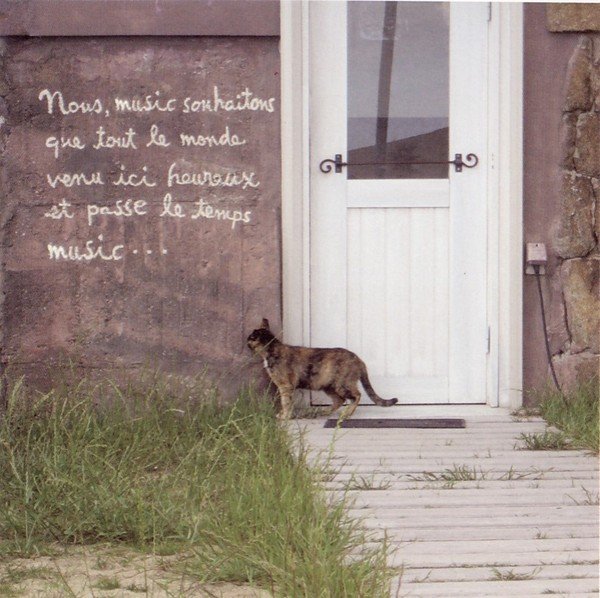 Nous, music souhaitons
que tout le monde
venu ici heureux
et passe le temps
music...